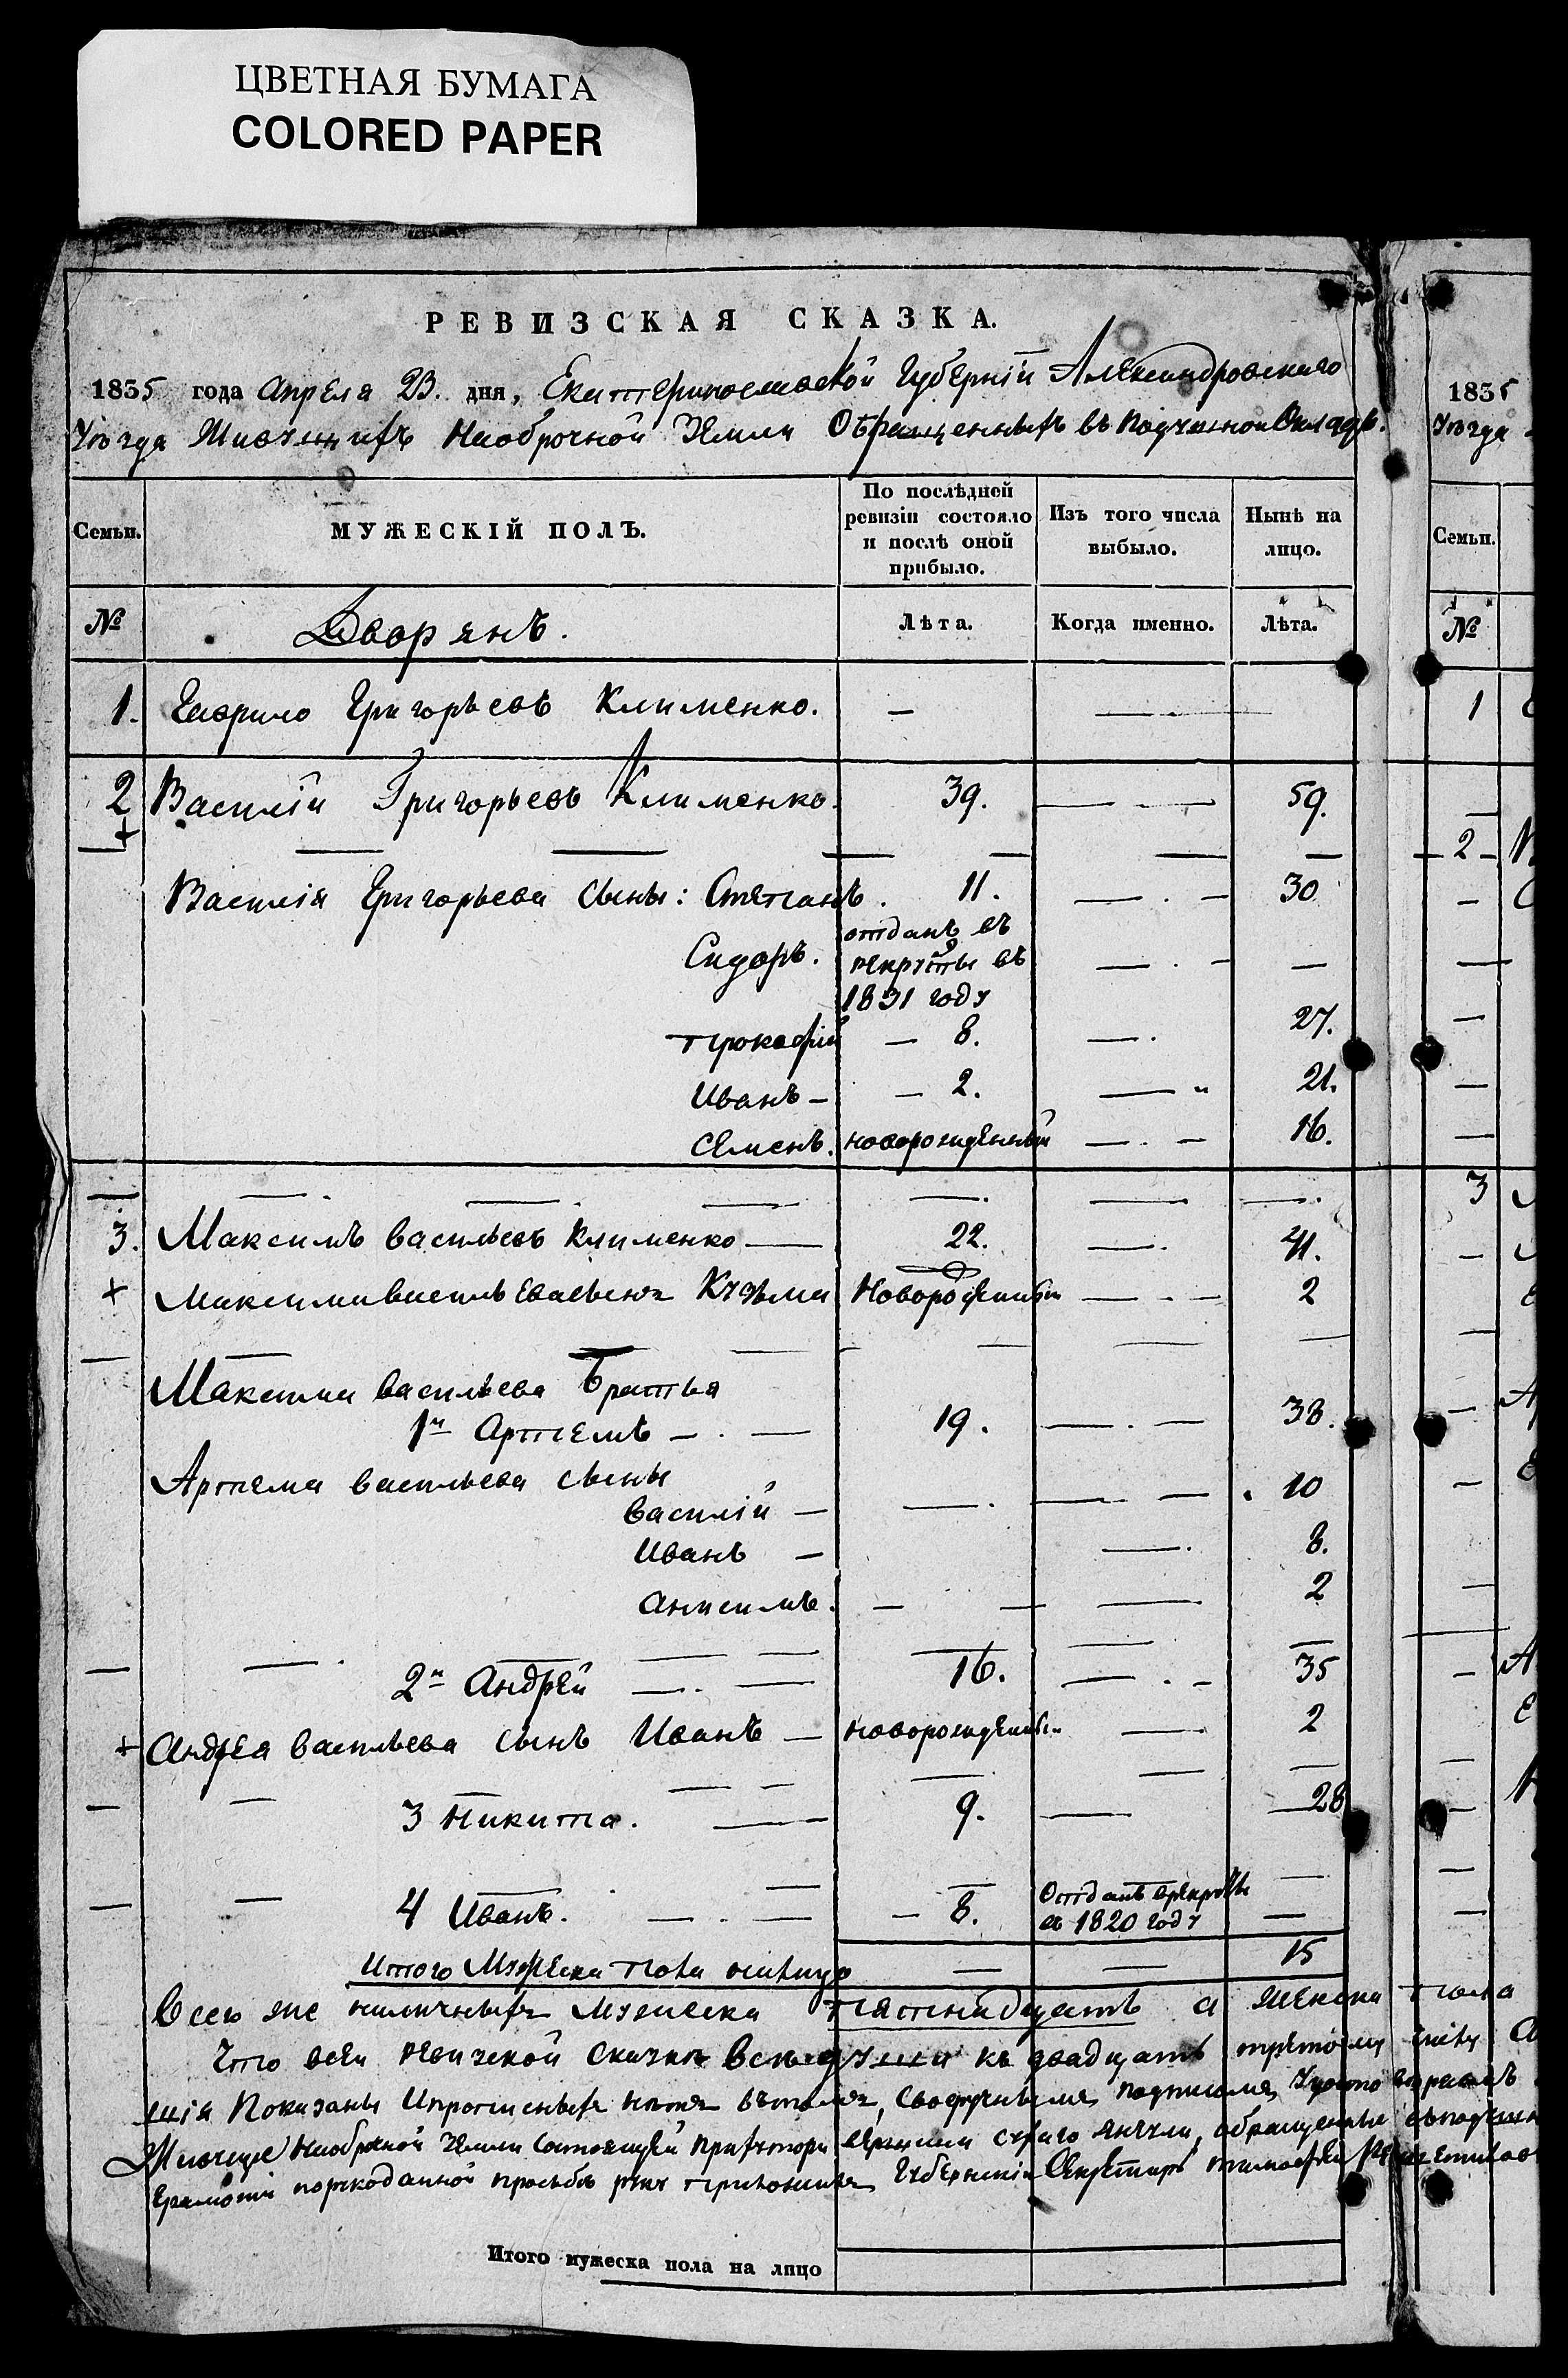 ЦВЕТНАЯ БУМАГА
COLORED PAPER
РЕВИЗСКАЯ СКАЗКА.
1835 года Апреля 23. дня, Екатеринославской Губерніи Александровскаго
Уѣзда Живущихъ Наоброчной Земли Обращенныхъ въ Подушной Окладъ.
1835
Уѣзда
Семьи.
МУЖЕСКІЙ ПОЛЪ.
По послѣдней ревизіи состояло и послѣ оной прибыло.
Изъ того числа выбыло.
Нынѣ на лицо.
Семьи.
№ Дворянъ. Лѣта. Когда именно. Лѣта. №
1. Гаврило Григорьевъ Клименко. — — 1
2 Василій Григорьевъ Клименко. 39. — 59.
+ 2
Василія Григорьева сыны: Степанъ. 11. — 30
Сидоръ. отданъ въ рекруты въ 1831 году — —
Прокофій — 8. — 27.
Иванъ — — 2. — 21.
Семенъ. новорожденный — 16.
3
3. Максимъ Васильевъ Клименко — 22. — 41.
+ Максима Васильева сынъ Кузьма Новорожденный — 2
Максима Васильева Братья
1й Артемъ — 19. — 38.
Артема Васильева сыны
Василій — — — 10
Иванъ — — 8.
Анисимъ. — — 2
2й Андрей — 16. — 35
+ Андрея Васильева сынъ Иванъ — новорожденный — 2
3 Никита. — 9. — 28
4 Иванъ. — 8. Отданъ врекруты въ 1820 году —
Итого Мужеска пола налицо — — 15
Всего же наличныхъ Мужеска пятнадцать а женска пола
Что всей ревизской сказки вси души къ двадцать третому
шія Показаны Ипрописныхъ нетъ вътомъ, своеручнымъ подписомъ
Живущіе Наоброчной Земли Состоящей
Губернскій Секретарь
Итого мужеска пола на лицо